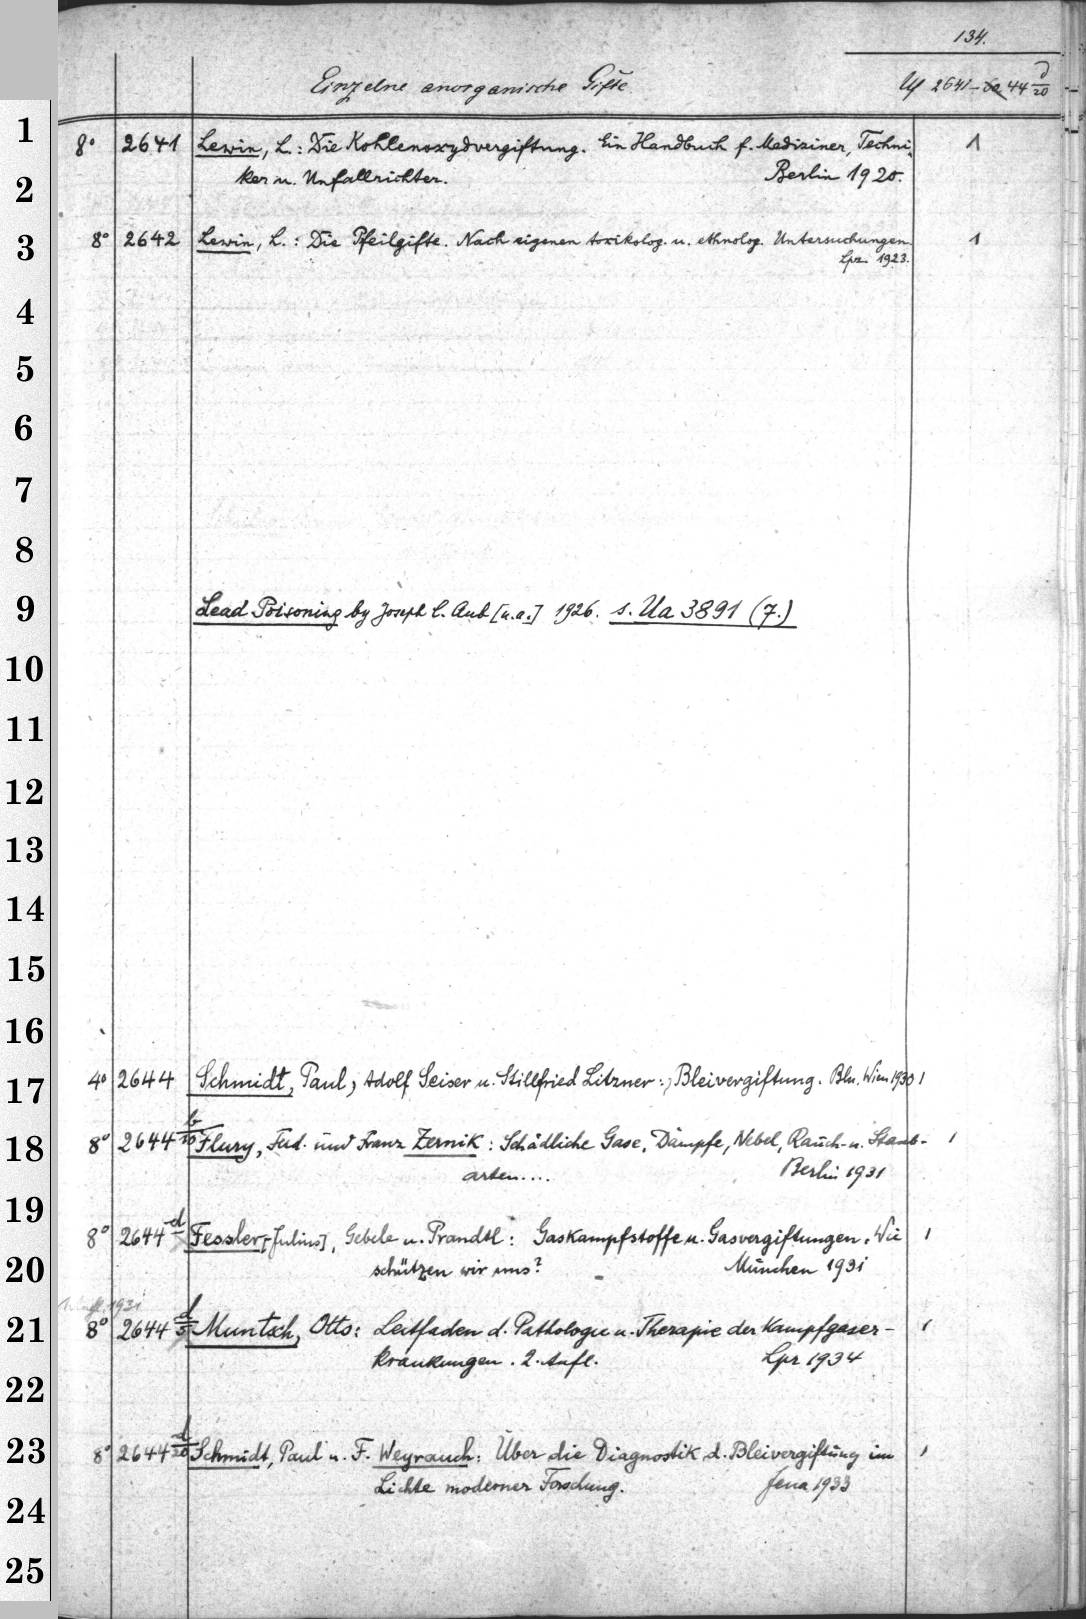 134.
Einzelne anorganische Gifte. Uf 2641- 44 d/20
1
8° 2641 Lewin, L.: Die Kohlenoxydvergiftung. Ein Handbuch f. Mediziner, Techni- 1
2
ker u. Unfallrichter. Berlin 1920.
3
8° 2642 Lewin, L.: Die Pfeilgifte. Nach eigenen toxikolog. u. ethnolog. Untersuchungen. 1
Lpz. 1923.
4
5
6
7
8
9
Lead Poisoning by Joseph C. Aub [u.a.] 1926. s. Ua 3891 (7.)
10
11
12
13
14
15
16
17
4° 2644 Schmidt, Paul, Adolf Seiser u. Stillfried Litzner: Bleivergiftung. Bln. Wien 1930 1
18
8° 2644 b/10 Flury, Ferd. und Franz Zernik: Schädliche Gase, Dämpfe, Nebel, Rauch- u. Staub- 1
arten.... Berlin 1931
19
8° 2644 d Fessler [Julius], Gebele u. Prandtl: Gaskampfstoffe u. Gasvergiftungen. Wie 1
20
schützen wir uns? München 1931
1931
21
8° 2644 d/5 Muntsch, Otto: Leitfaden d. Pathologie u. Therapie der Kampfgaser- 1
krankungen. 2. Aufl. Lpz 1934
22
23
8° 2644 d/20 Schmidt, Paul u. F. Weyrauch: Über die Diagnostik d. Bleivergiftung im 1
Lichte moderner Forschung. Jena 1933
24
25